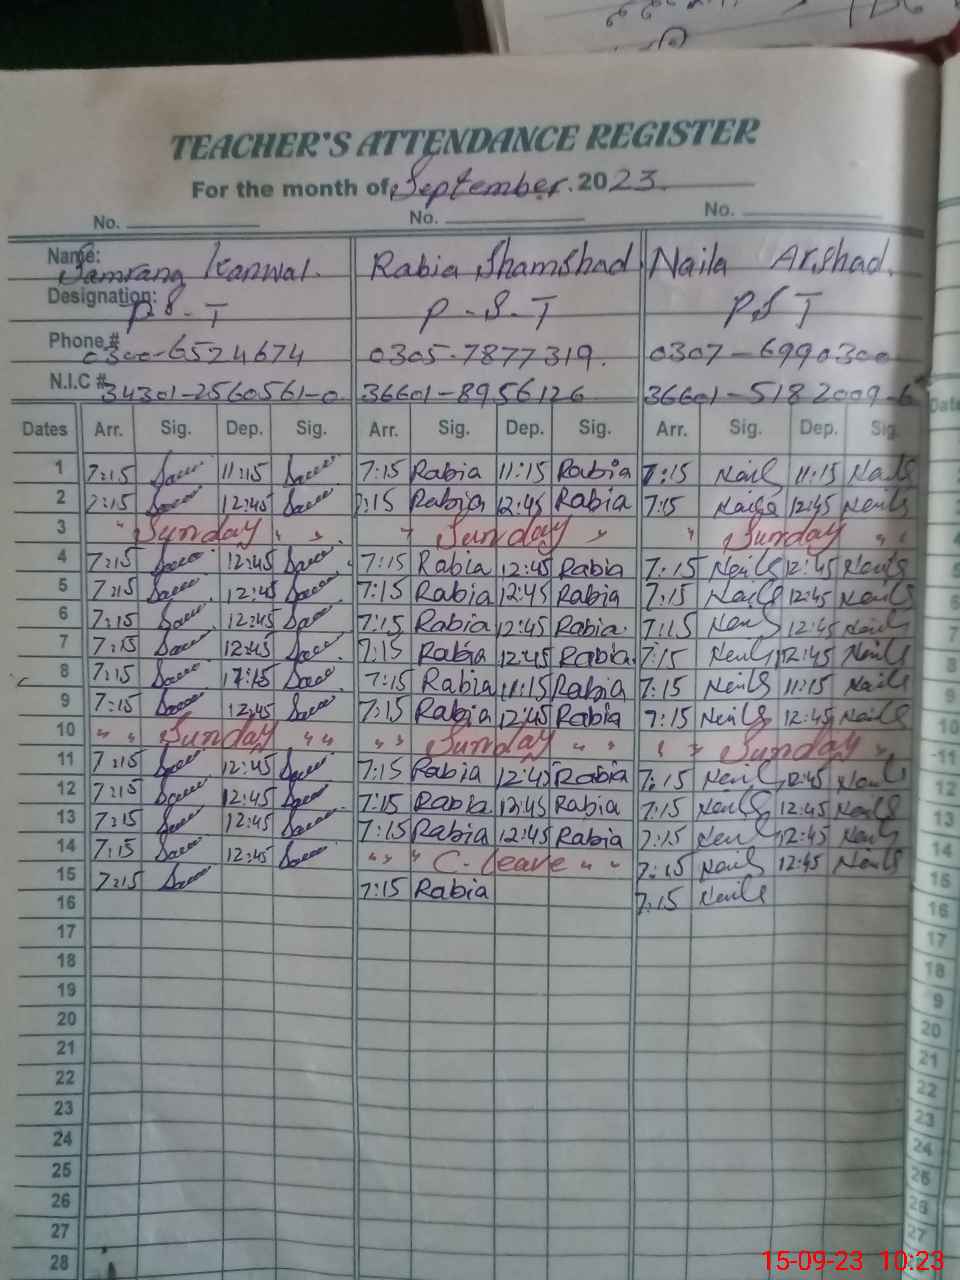 TEACHER'S ATTENDANCE REGISTER
For the month of September. 2023.
No. No. No.
Name: Samrang Kanwal. Rabia Shamshad Naila Arshad.
Designation: P.S.T P.S.T PST
Phone # 0300-6524674 0305-7877319. 0307-6990300
N.I.C # 34301-2560561-0 36601-8956126 36601-5182009-6
Dates Arr. Sig. Dep. Sig. Arr. Sig. Dep. Sig. Arr. Sig. Dep. Sig. Date
1 7:15 11:15 7:15 Rabia 11:15 Rabia 7:15 Naila 11:15 Naila
2 7:15 12:45 7:15 Rabia 12:45 Rabia 7:15 Naila 12:45 Naila
3 " Sunday " " " Sunday " " Sunday " "
4 7:15 12:45 7:15 Rabia 12:45 Rabia 7:15 Naila 12:45 Naila
5 7:15 12:45 7:15 Rabia 12:45 Rabia 7:15 Naila 12:45 Naila
6 7:15 12:45 7:15 Rabia 12:45 Rabia 7:15 Naila 12:45 Naila
7 7:15 12:45 7:15 Rabia 12:45 Rabia 7:15 Naila 12:45 Naila
8 7:15 7:15 Rabia 11:15 Rabia 7:15 Naila 11:15 Naila
9 7:15 12:45 7:15 Rabia 12:45 Rabia 7:15 Naila 12:45 Naila
10 " " Sunday " " " " Sunday " " " " Sunday "
11 7:15 12:45 7:15 Rabia 12:45 Rabia 7:15 Naila 12:45 Naila
12 7:15 12:45 7:15 Rabia 12:45 Rabia 7:15 Naila 12:45 Naila
13 7:15 12:45 7:15 Rabia 12:45 Rabia 7:15 Naila 12:45 Naila
14 7:15 12:45 " " " C. leave " " 7:15 Naila 12:45 Naila
15 7:15 7:15 Rabia 7:15 Naila
16
17
18
19
20
21
22
23
24
25
26
27
28
15-09-23 10:23